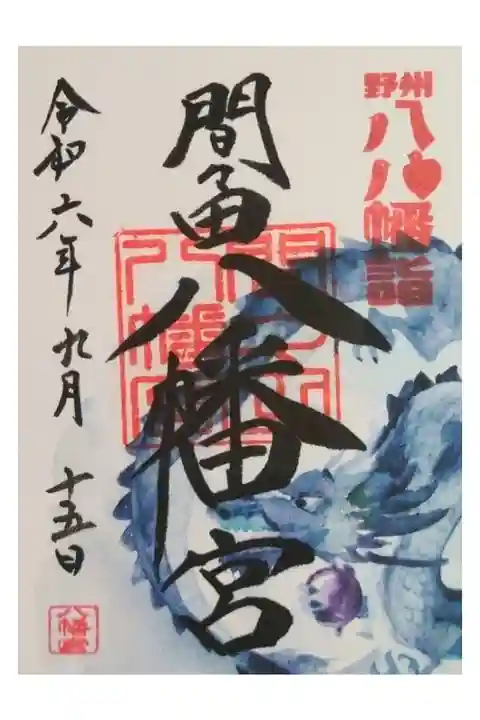 野州
八八幡詣
間々田八幡宮
令和六年九月十五日
八幡宮